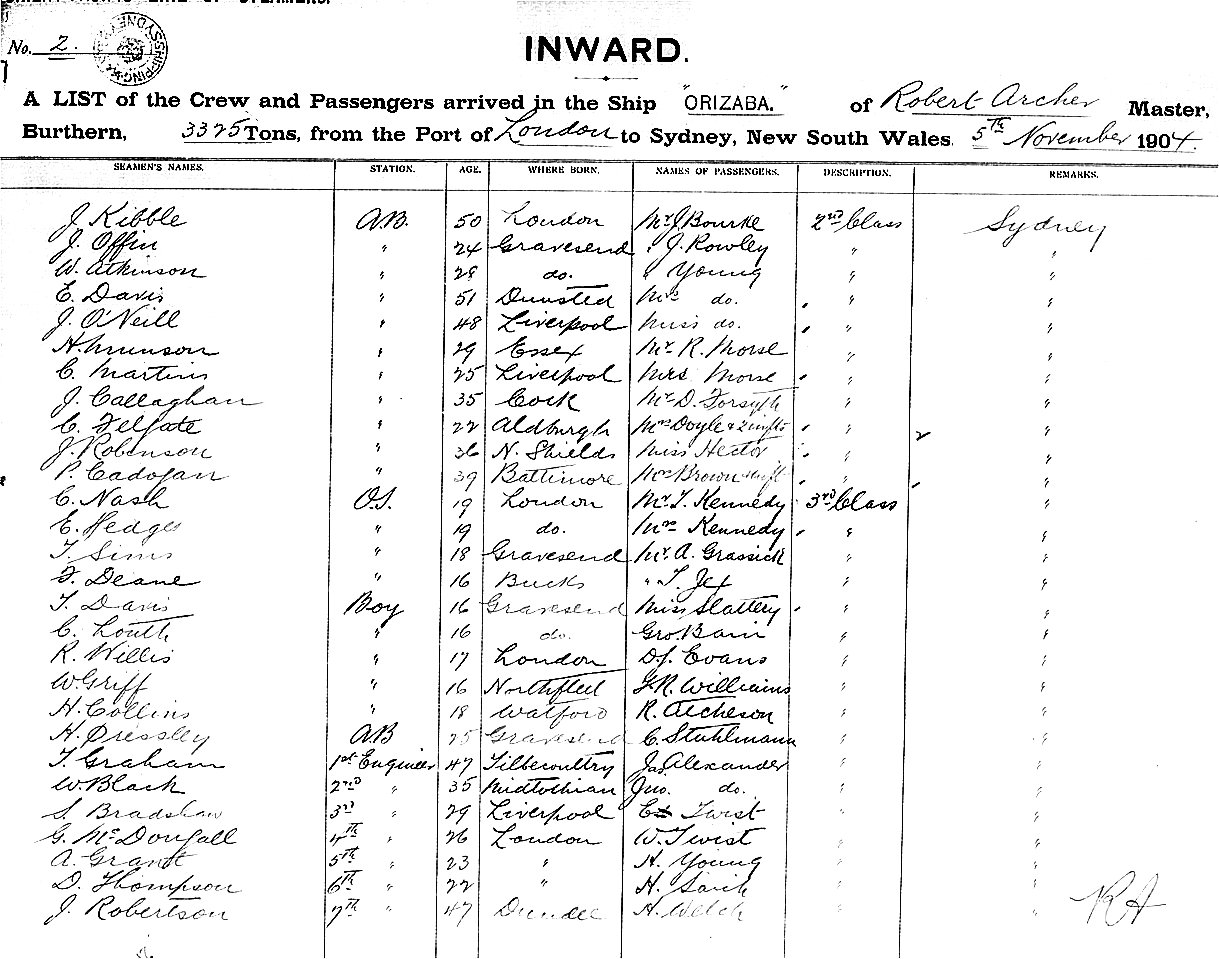 No. 2.
SYDNEY SHIPPING
INWARD.
A LIST of the Crew and Passengers arrived in the Ship "ORIZABA." of Robert Archer Master,
Burthern, 3325 Tons, from the Port of London to Sydney, New South Wales. 5TH November 1904.
SEAMEN'S NAMES. STATION. AGE. WHERE BORN. NAMES OF PASSENGERS. DESCRIPTION. REMARKS.
J. Kibble A.B. 50 London Mr J. Bourke 2nd Class Sydney
J. Offin " 24 Gravesend " J. Rowley " "
W. Atkinson " 28 do. " Young " "
E. Davis " 51 Mrs do. " "
J. O'Neill " 48 Liverpool Miss do. " "
H. Munson " 29 Essex Mr. R. Morse " "
C. Martins " 25 Liverpool Mrs Morse " "
J. Callaghan " 35 Cock Mr D. Forsyth " "
C. Felgate " 22 Aldburgh Mrs Doyle & 2 infts " 2 "
J. Robinson " 36 N. Shields Miss Hector " "
P. Cadogan " 39 Battimore Mrs Brown & inft " "
C. Nash O.S. 19 London Mr. T. Kennedy 3rd Class "
E. Hedges " 19 do. Mrs Kennedy " "
T. Sims " 18 Gravesend Mr. A. Grassick " "
F. Deane " 16 Bucks " T. Jex " "
T. Davis Boy 16 Gravesend Miss Slattery " "
C. Louth " 16 do. Geo. Bain " "
R. Willis " 17 London D.J. Evans " "
W. Griff " 16 Northfleet J.R. Williams " "
H. Collins " 18 Watford R. Aicheson " "
H. Pressley AB 25 Gravesend C. Stuhlmann " "
T. Graham 1st Engineer 47 Jas. Alexander " "
W. Black 2ND " 35 Midlothian Jno. do. " "
S. Bradshaw 3rd " 29 Liverpool Twist " "
G. McDougall 4TH " 26 London W. Twist " "
A. Grant 5TH " 23 " H. Young " "
D. Thompson 6TH " 22 " H. " "
J. Robertson 7TH " 47 Dundee H. Welch " " RA